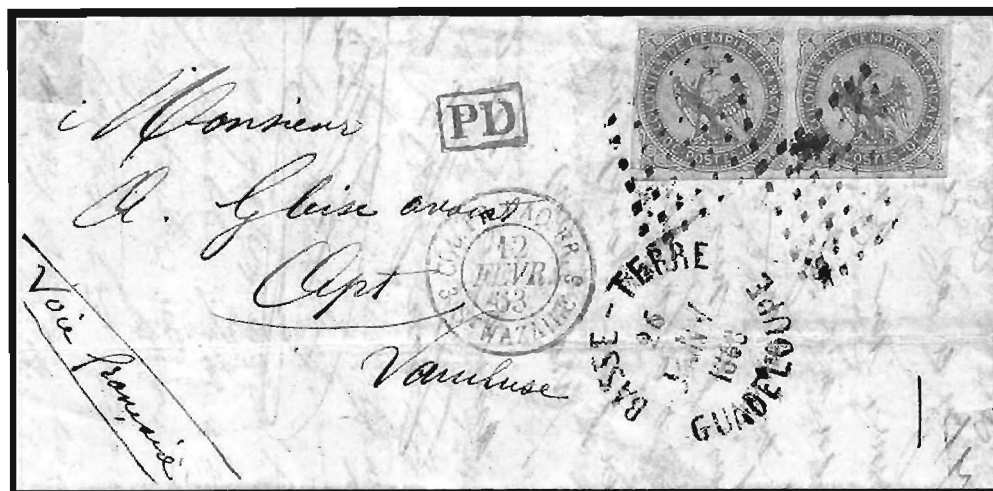 COLONIES DE L'EMPIRE FRANÇAIS
POSTES
COLONIES DE L'EMPIRE FRANÇAIS
POSTES
PD
Monsieur
A. Gloise avoué
Apt
Vaucluse
Voie française
12
FEVR
63
ST NAZAIRE
BASSE-TERRE
26
JANV
1863
GUADELOUPE